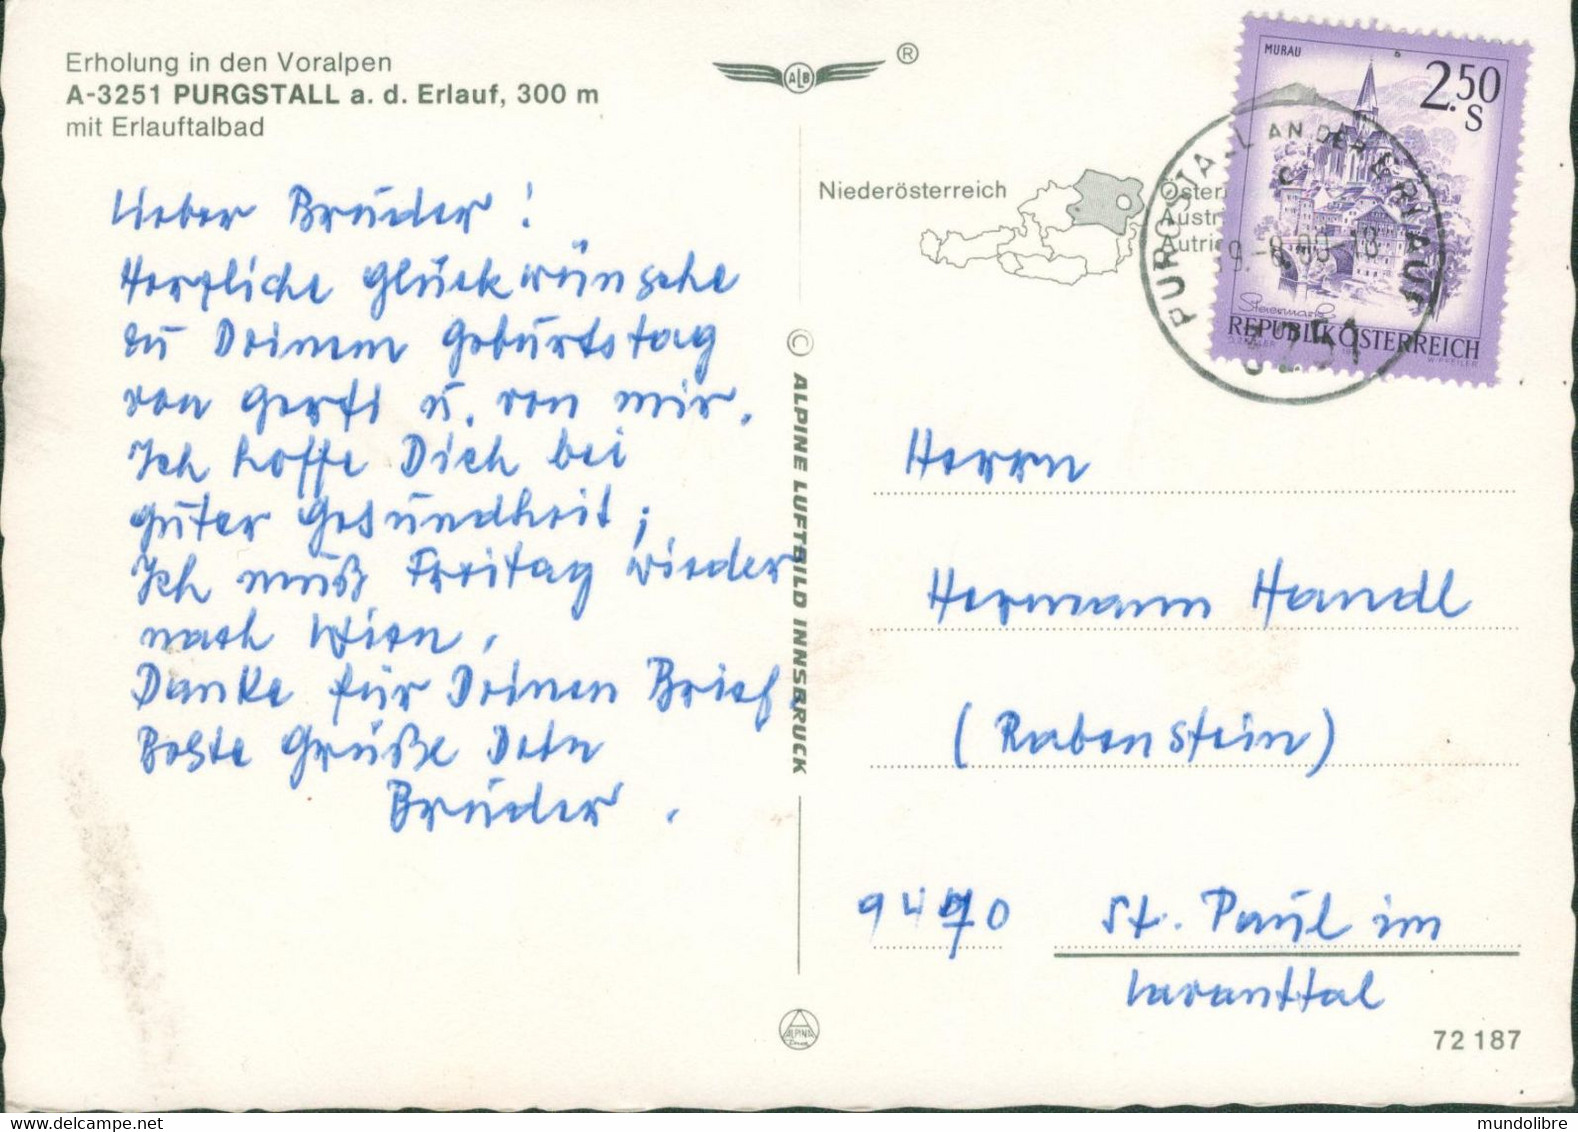 Erholung in den Voralpen
A-3251 PURGSTALL a. d. Erlauf, 300 m
mit Erlauftalbad
Lieber Bruder!
Herzliche Glückwünsche
zu Deinem Geburtstag
von Gerfi u. von mir.
Ich hoffe Dich bei
guter Gesundheit;
Ich muß Freitag wieder
nach Wien.
Danke für Deinen Brief.
Beste Grüße Dein
Bruder.
ALB
®
© ALPINE LUFTBILD INNSBRUCK
ALPINA
Niederösterreich
Öster
Austr
Autri
MURAU
2.50
S
Steiermark
REPUBLIK ÖSTERREICH
PURGSTALL AN DER ERLAUF
3251
Herrn
Hermann Handl
(Rabenstein)
9470 St. Paul im
Lavanttal
72 187
mundolibre